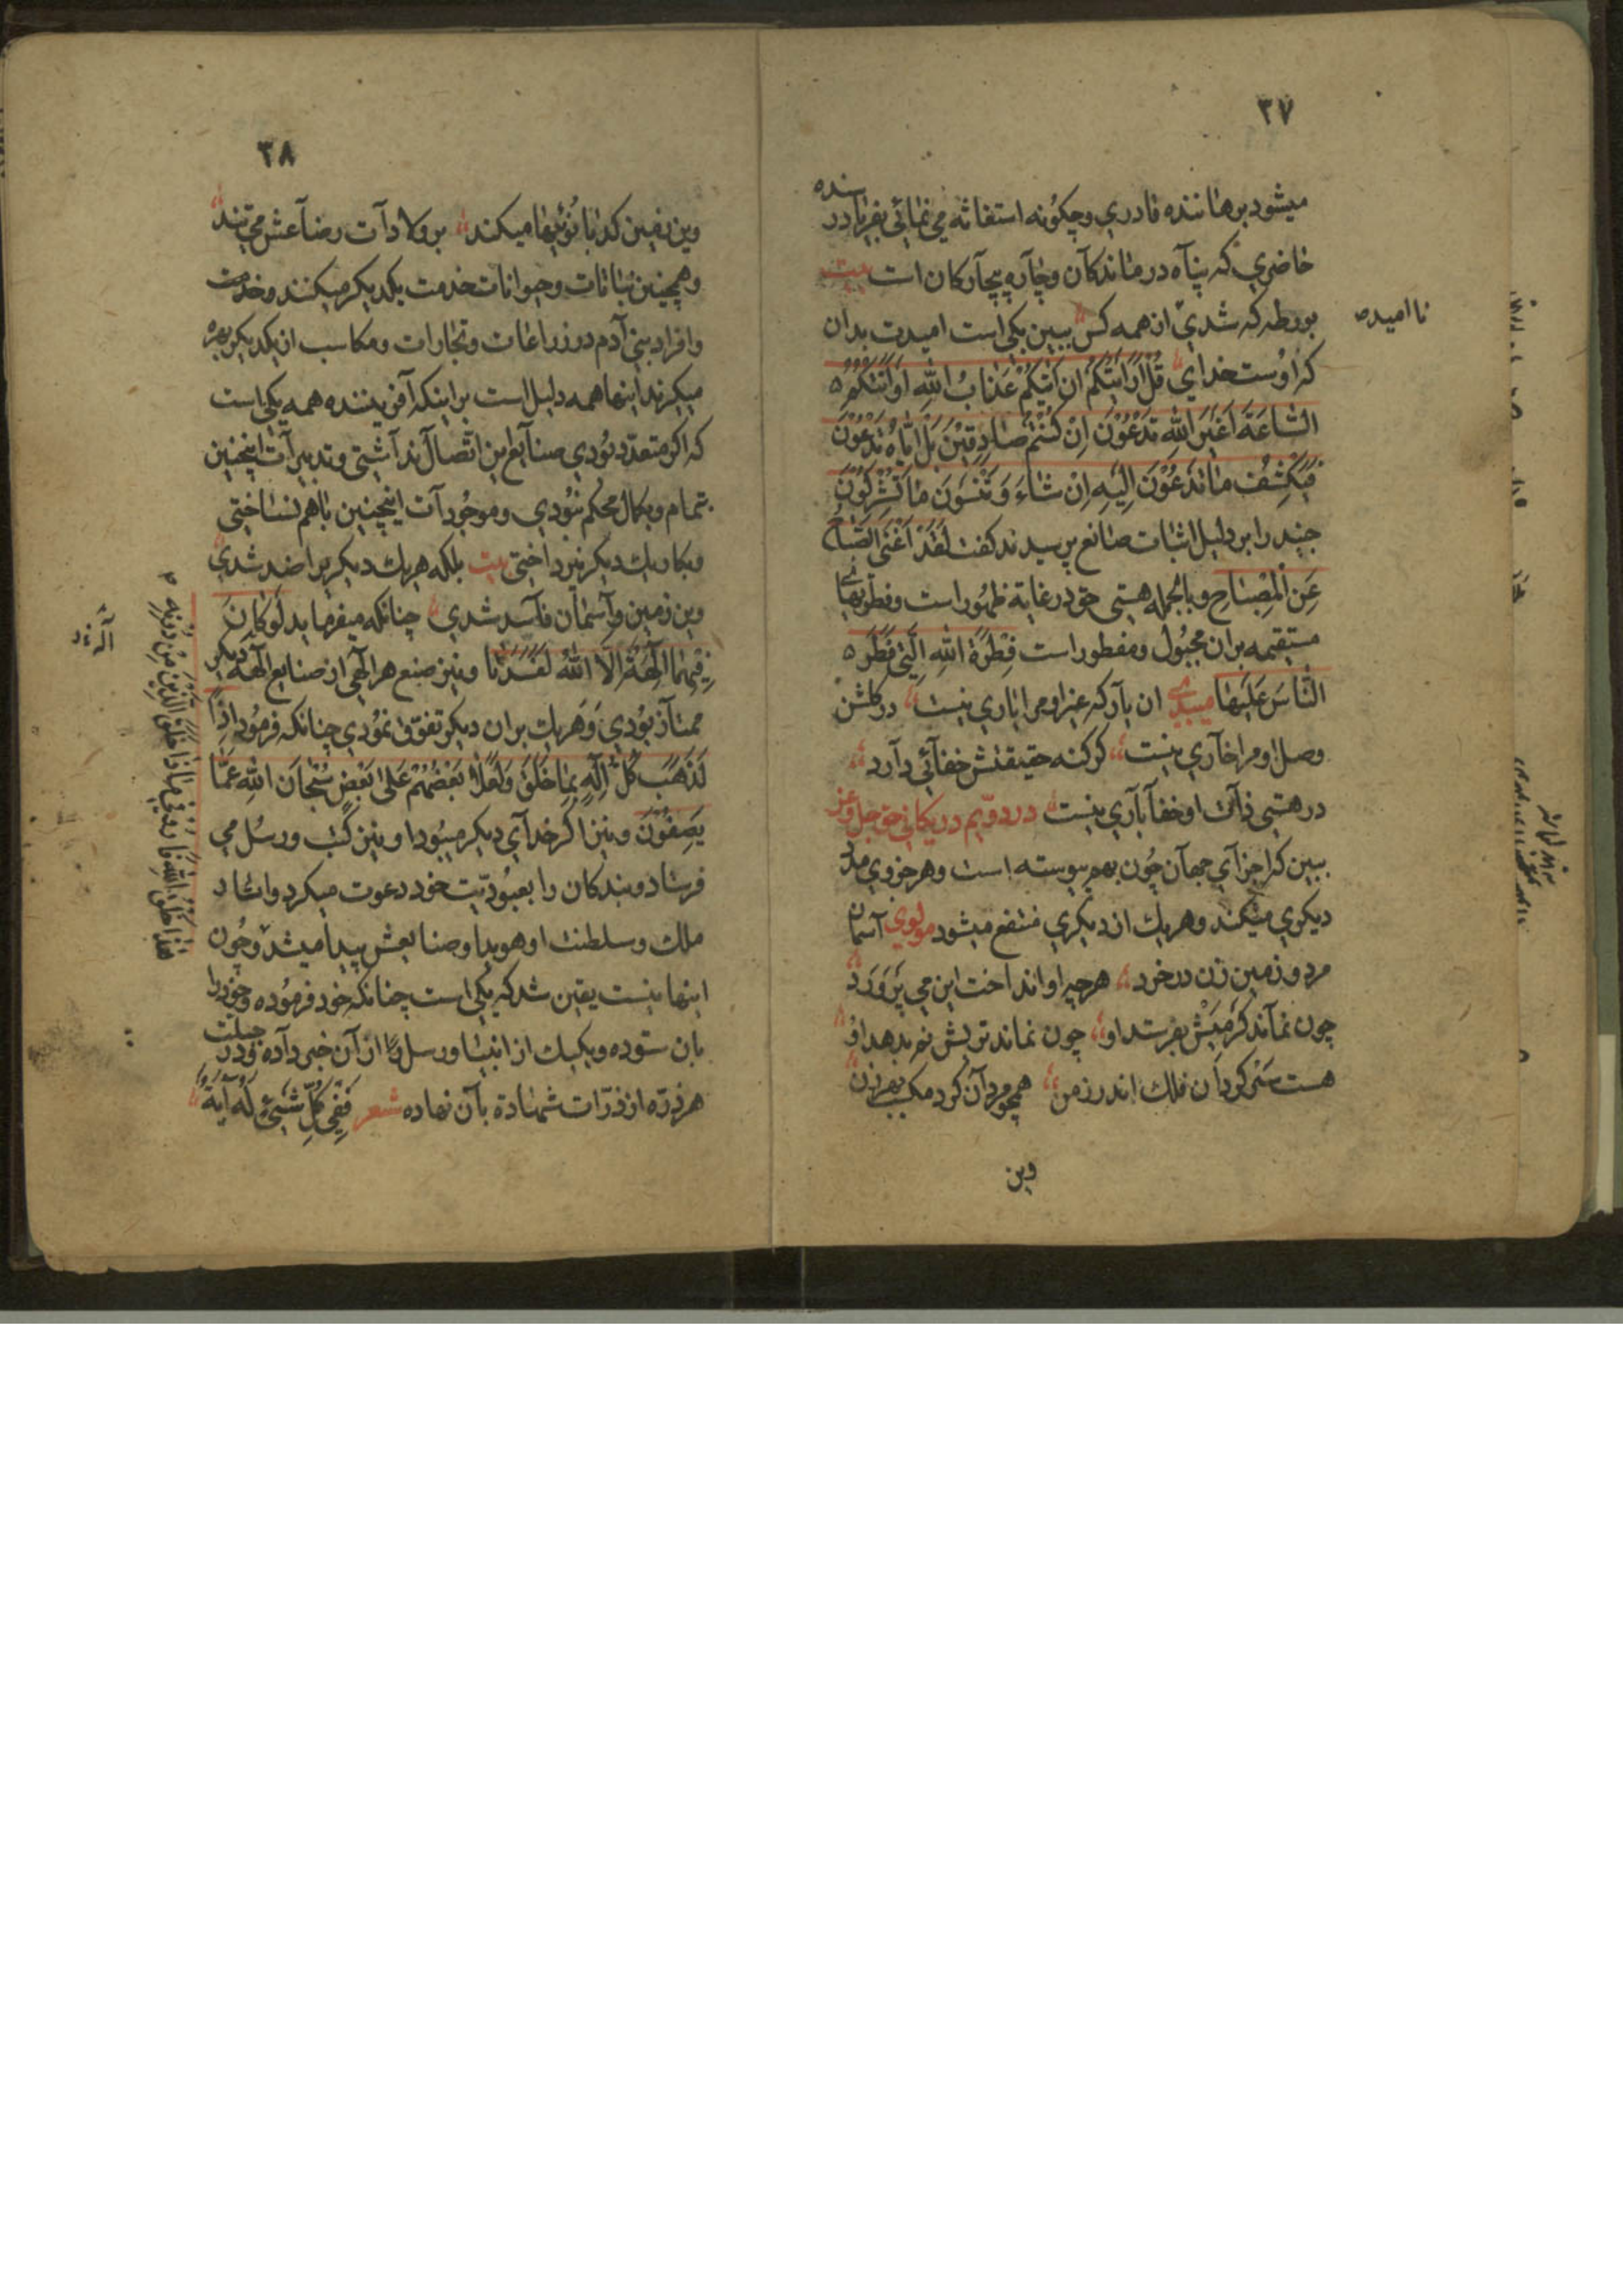 ۳۷
میشود برهاننده قادری و چگونه استغاثه می نمائی بفریادرسنده
حاضری که پناه درماندکان و چاره بیچارکان است بیت
بورطه که شدی از همه کس نا امید ببین یکی است امیدت بدان
که اوست خدای قُلْ اَرَاَیْتَکُمْ اِنْ اَتٰیکُمْ عَذَابُ اللهِ اَوْ اَتَتْکُمُ
السَّاعَةُ اَغَیْرَ اللهِ تَدْعُوْنَ اِنْ کُنْتُمْ صَادِقِیْنَ بَلْ اِیَّاهُ تَدْعُوْنَ
فَیَکْشِفُ مَا تَدْعُوْنَ اِلَیْهِ اِنْ شَاءَ وَ تَنْسَوْنَ مَا تُشْرِکُوْنَ
جنید را بر دلیل اثبات صانع پرسیدند گفت لَقَدْ اَغْنَی الصَّبَاحُ
عَنِ الْمِصْبَاحِ و بالجمله هستی حق در غایة ظهور است و فطرتهای
مستقیمه بران مجبول و مفطور است فِطْرَةَ اللهِ الَّتِی فَطَرَ
النَّاسَ عَلَیْهَا میبدی ان یار که غیر او مرا یاری نیست در کلشن
وصل او مرا خاری نیست کر کنه حقیقتش خفائی دارد
در هستی ذات او خفا باری نیست در دویم در یکانی حق جل و عز
ببین که اجزای جهان چون بهم پیوسته است و هر جزوی مدد
دیکری میکند و هر یک از دیکری منتفع میشود مولوی آسمان
مرد و زمین زن در خرد هرچه او انداخت این می پَرْوَرَد
چون نماند کرمیش بفرستد او چون نماند تریش نم بدهد او
هست سرکردان فلک اندر زمن همچو مردان کرد مکسب بهر زن
وین
۳۸
وین زمین کدبانوئیها میکند بر ولادات و رضاعش می تند
و همچنین نباتات و حیوانات خدمت یکدیکر میکنند و خدمت
و افراد بنی آدم در زراعات و تجارات و مکاسب از یکدیکر بهره
میکیرند اینها همه دلیل است بر اینکه آفریننده همه یکی است
که اکر متعدد بودی صنایع این اتصال نداشتی و تدبیرات اینچنین
بتمام و بکمال محکم نبودی و موجودات اینچنین باهم نساختی
و بکار یک دیکر نپرداختی بیت بلکه هر یک دیکری را ضد شدی
وین زمین و آسمان فاسد شدی چنانکه میفرماید لَوْ کَانَ
فِیْهِمَا اٰلِهَةٌ اِلَّا اللهُ لَفَسَدَتَا و نیز صنع هر الهی از صنایع الهه دیکر
ممتاز بودی و هر یک بران دیکر تفوق نمودی چنانکه فرمود اِذًا
لَذَهَبَ کُلُّ اِلٰهٍ بِمَا خَلَقَ وَلَعَلَا بَعْضُهُمْ عَلٰی بَعْضٍ سُبْحَانَ اللهِ عَمَّا
یَصِفُوْنَ و نیز اکر خدای دیکر میبود او نیز کتب و رسل می
فرستاد و بندکان را بعبودیت خود دعوت میکرد و آثار
ملک و سلطنت او هویدا و صنایعش پیدا میشد و چون
اینها نیست یقین شد که یکی است چنانکه خود فرموده و خود را
بان ستوده و یکیک از انبیا و رسل را از آن خبر داده و در جبلت
هر ذره از ذرات شهادة بآن نهاده شعر فَفِی کُلِّ شَیْءٍ لَهُ اٰیَةٌ